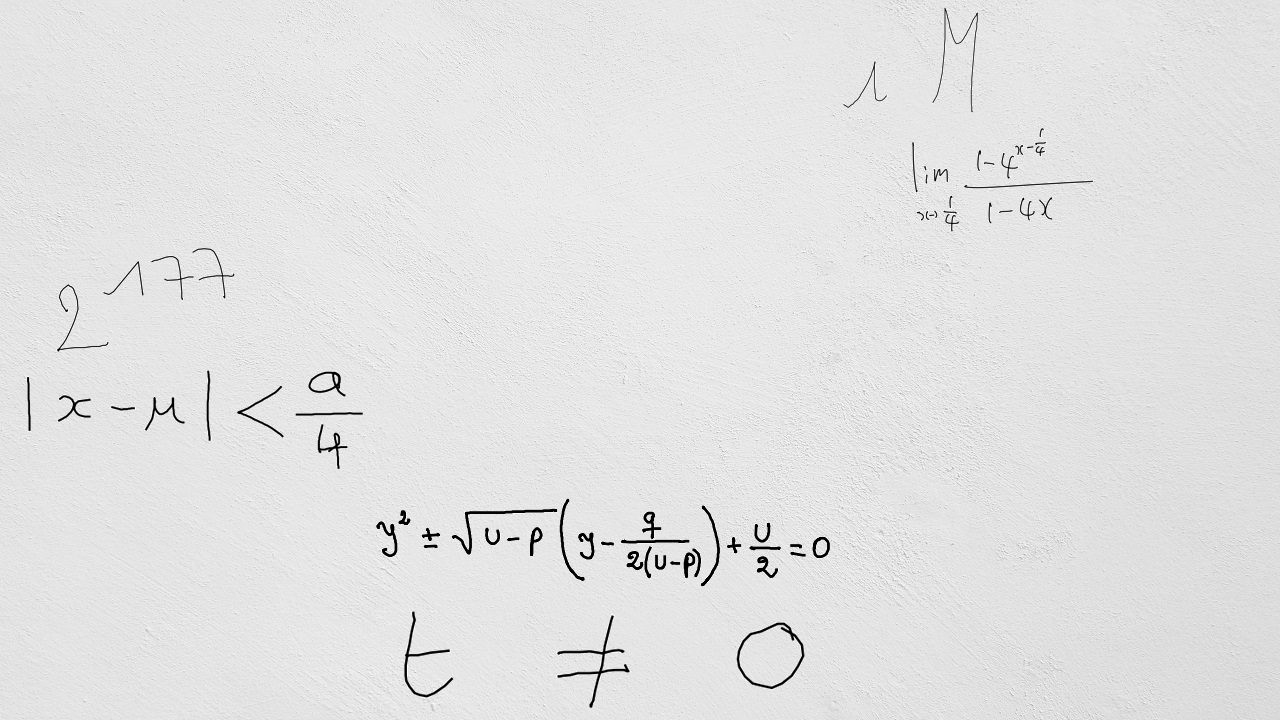 M
\lim_{x \to \frac{1}{4}} \frac{1-4^{x-\frac{1}{4}}}{1-4x}
2^{177}
|x-\mu| < \frac{a}{4}
y^2 \pm \sqrt{U-p}\left(y-\frac{q}{2(U-p)}\right)+\frac{U}{2}=0
t \neq 0